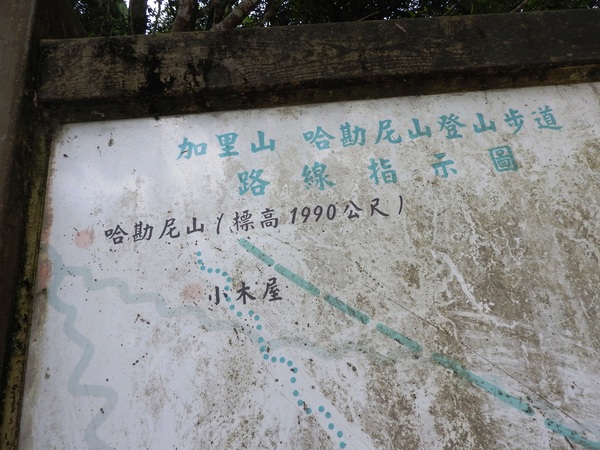 加里山 哈勘尼山登山步道
路線指示圖
哈勘尼山（標高1990公尺）
小木屋